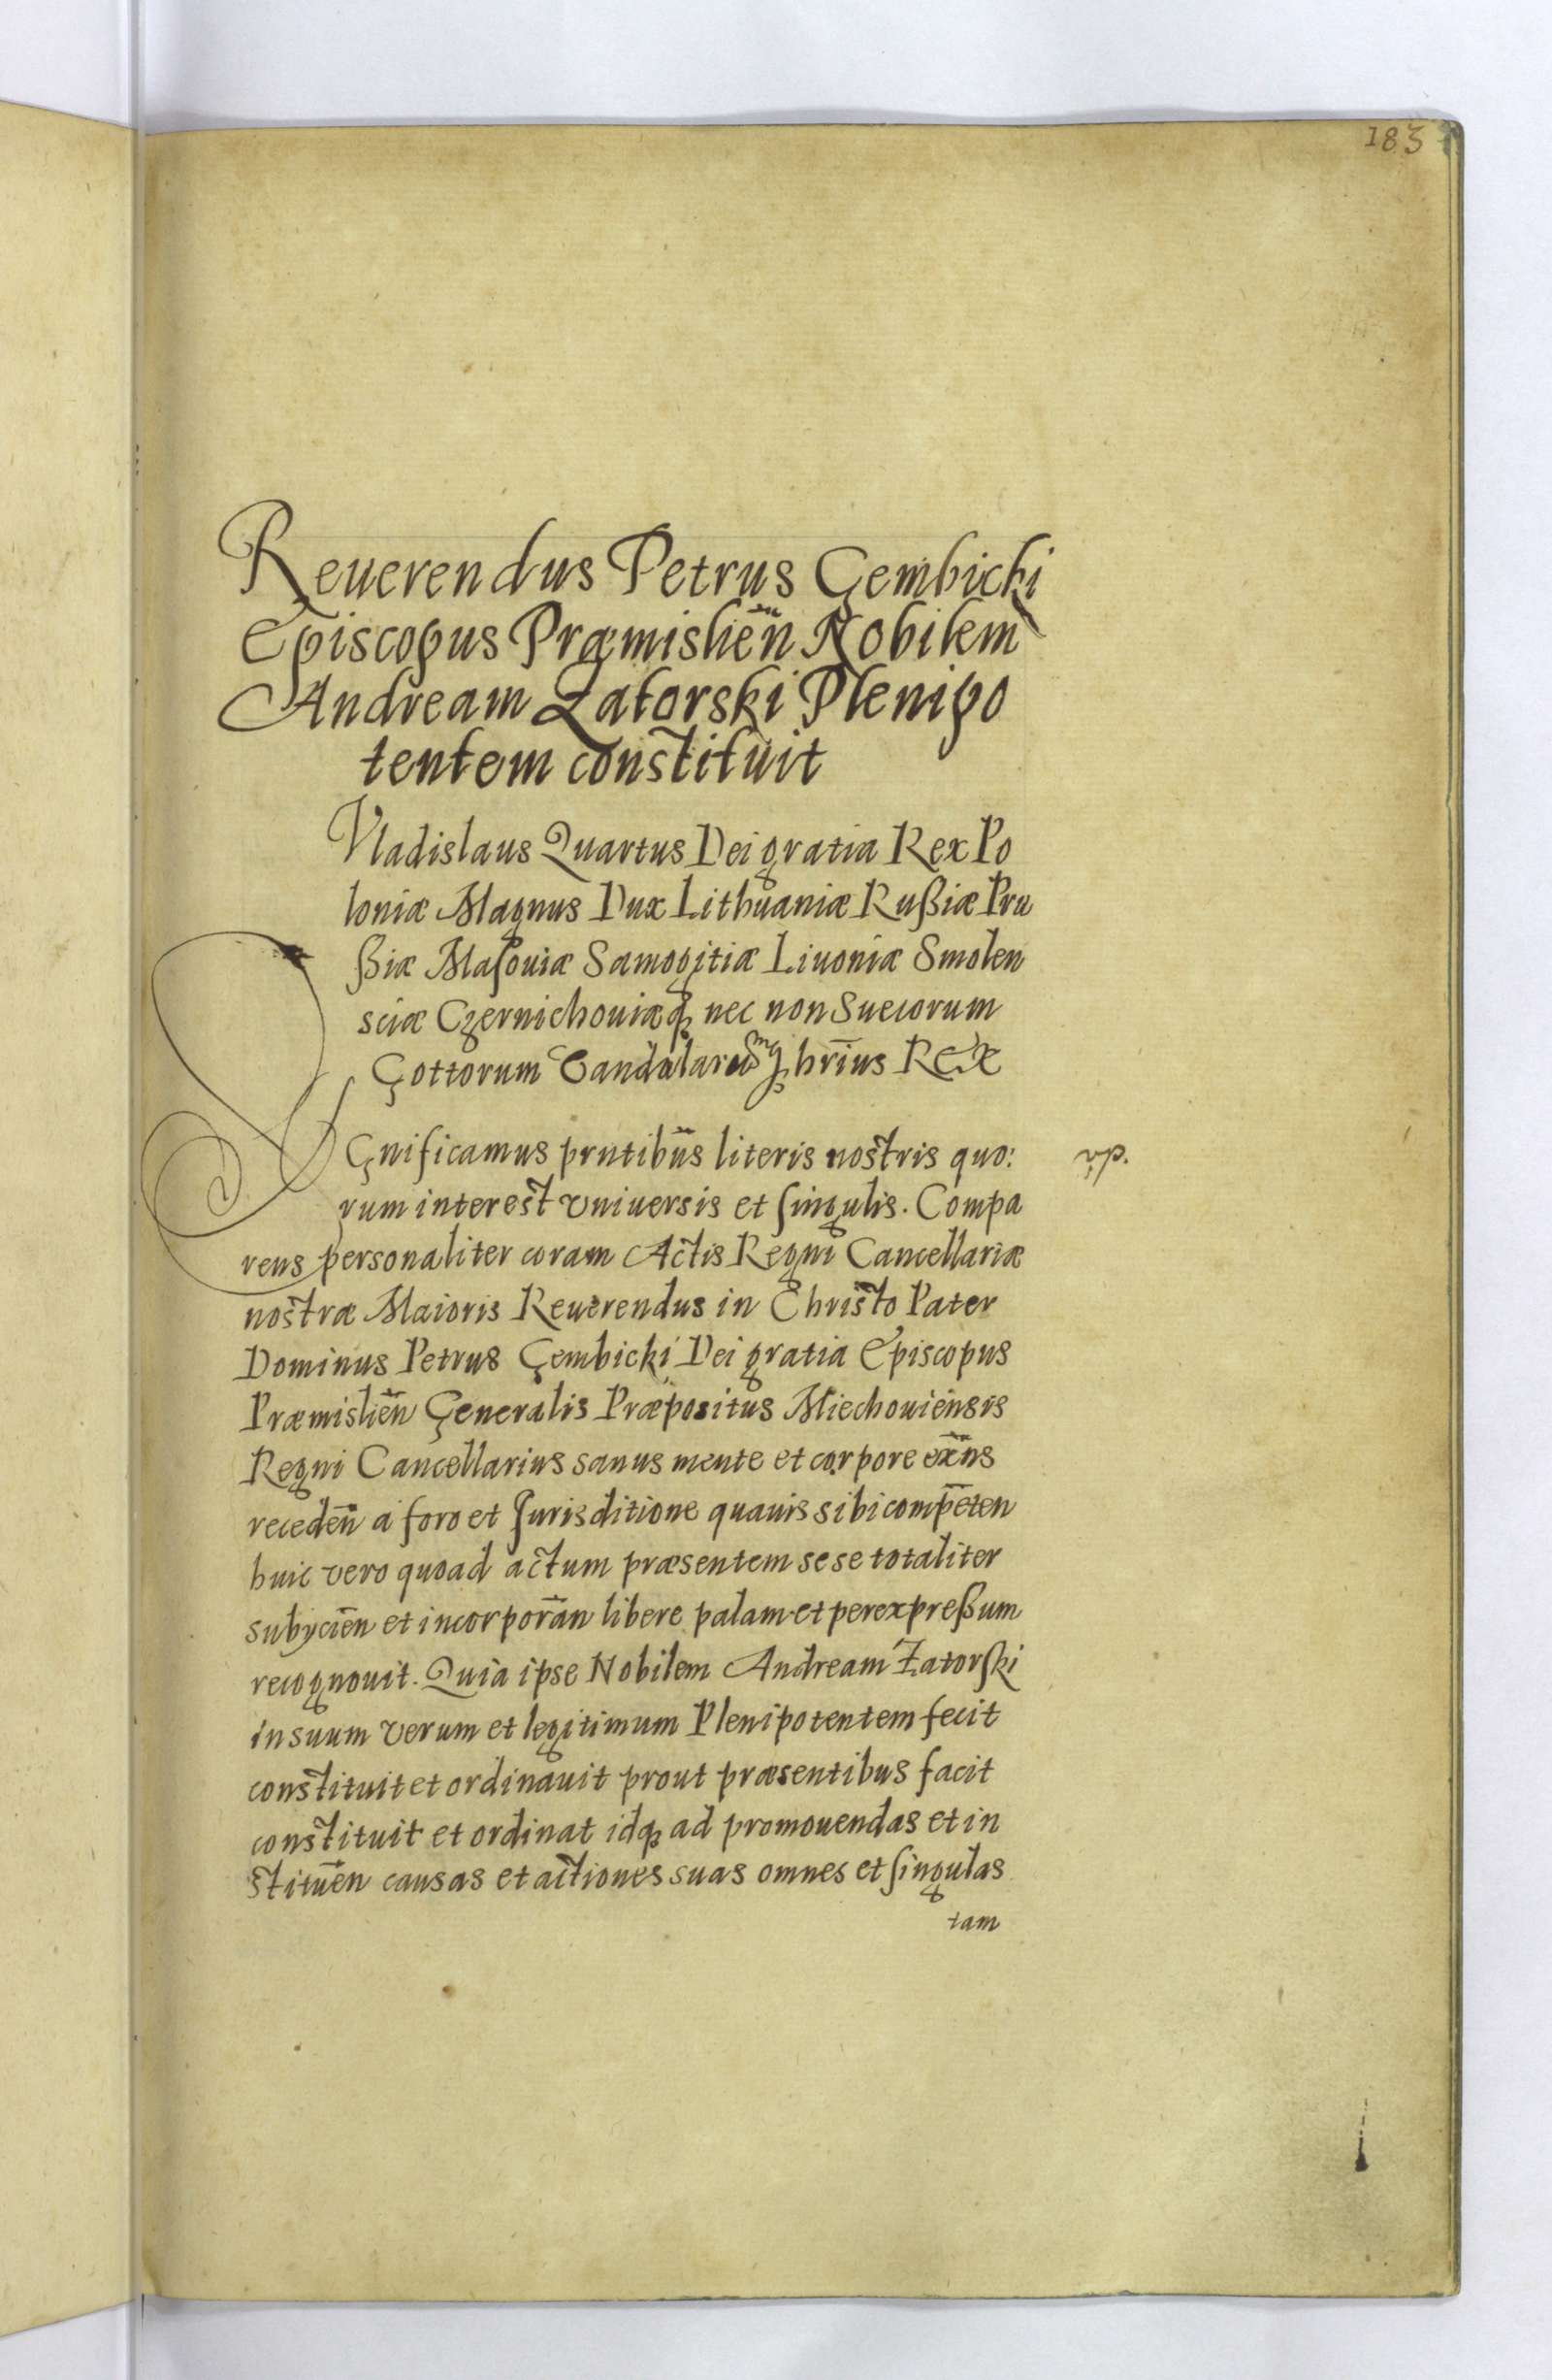 183
Reuerendus Petrus Gembicki
Episcopus Præmislien̄ Nobilem
Andream Zatorski Plenipo
tentem constituit
Vladislaus Quartus Dei gratia Rex Po
loniæ Magnus Dux Lithuaniæ Rußiæ Pru
ßiæ Masouiæ Samogitiæ Liuoniæ Smolen
sciæ Czernichouiæq̨ nec non Suecorum
Gottorum Vandalarumq̨ hr̄ius Rex
Signíficamus prntibūs literis nostris quo:
rum interest vniuersis et singulis. Compa
rens personaliter coram Actis Regni Cancellariæ
nostræ Maioris Reuerendus in Christo Pater
Dominus Petrus Gembicki Dei gratia Episcopus
Præmislien̄ Generalis Præpositus Miechouiensis
Regni Cancellarius sanus mente et corpore exn̄s
receden̄ a foro et Jurisditione quauis sibi compēten
huic vero quoad actum præsentem sese totaliter
subycien̄ et incorporan̄ libere palam et per expreßum
recognouit. Quia ipse Nobilem Andream Zatorski
in suum verum et legitimum Plenipotentem fecit
constituit et ordinauit prout præsentibus facit
constituit et ordinat idq̨ ad promouendas et in
stituen̄ causas et actiones suas omnes et singulas
tam